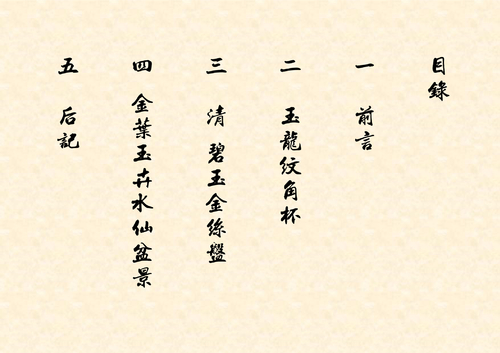 目錄
一 前言
二 玉龍紋角杯
三 清 碧玉金絲盤
四 金葉玉卉水仙盆景
五 后記